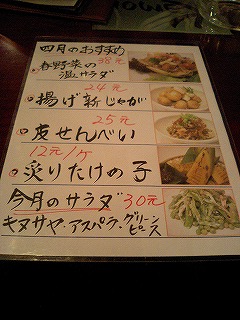 四月のおすすめ
春野菜の 38元
温サラダ
24元
揚げ新じゃが
25元
皮せんべい
12元/ケ
炙りたけの子
今月のサラダ 30元
キヌサヤ・アスパラ・グリーン
ピース